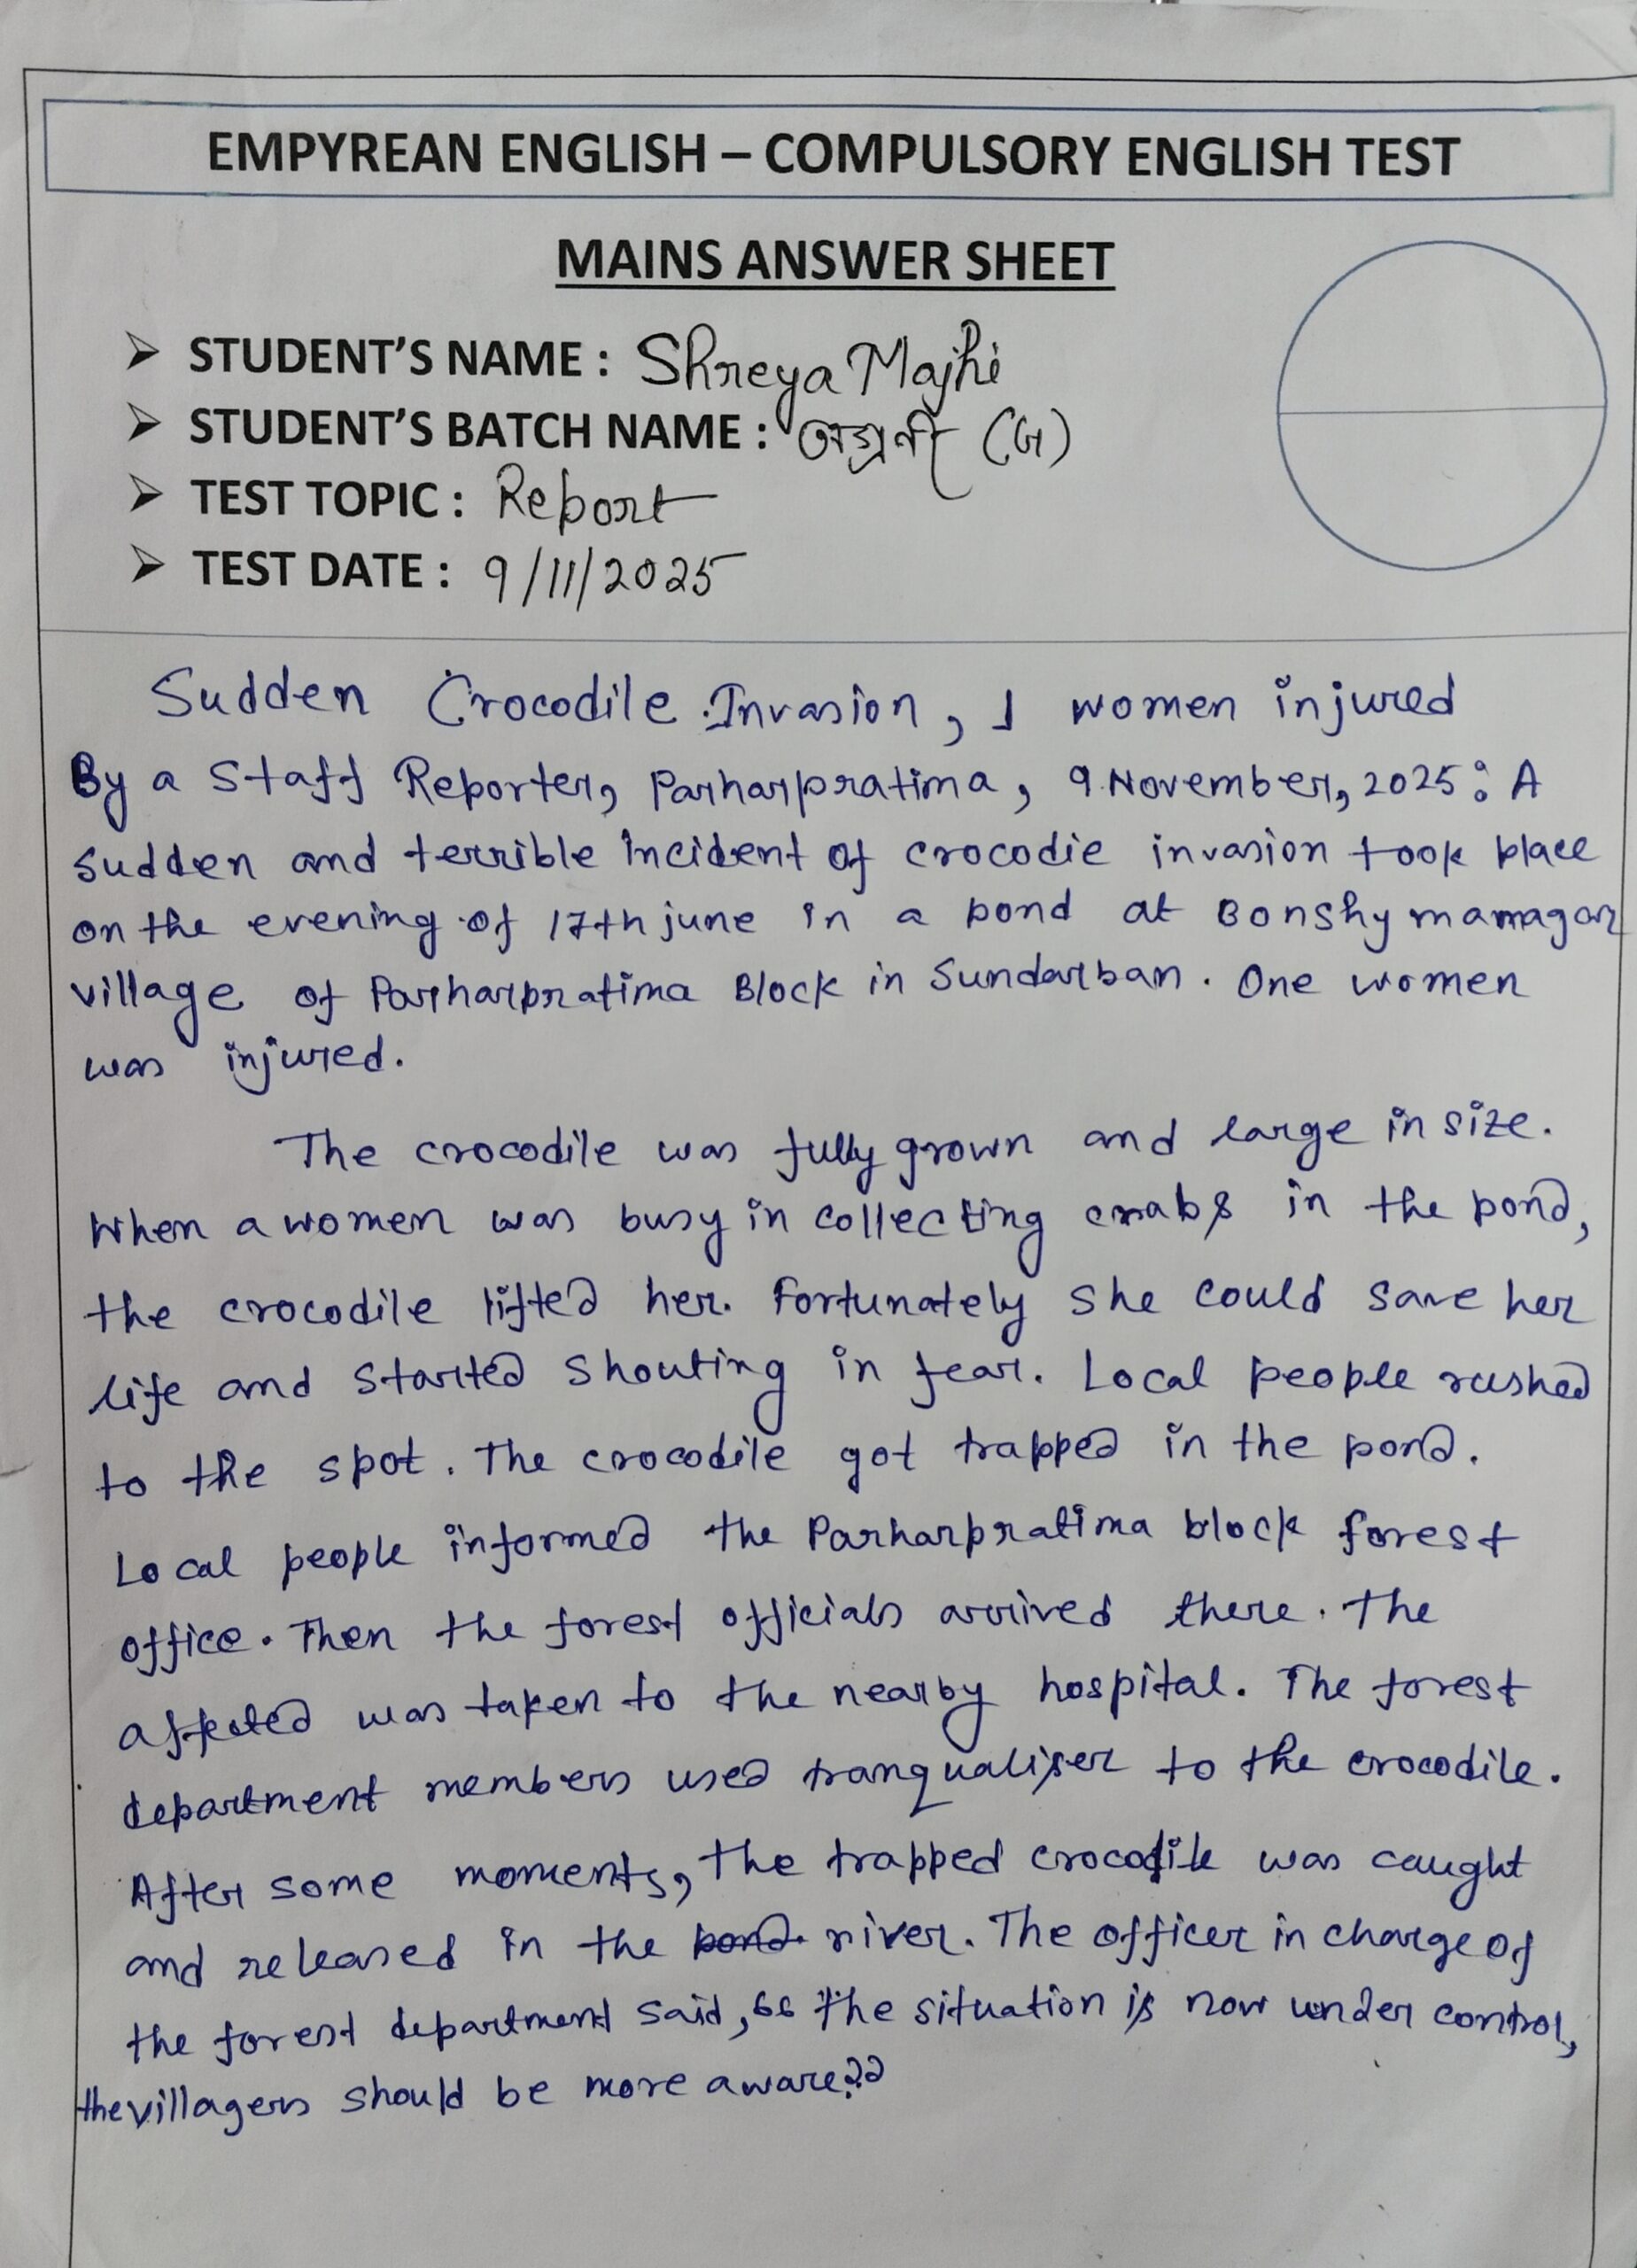 EMPYREAN ENGLISH – COMPULSORY ENGLISH TEST
MAINS ANSWER SHEET
➢ STUDENT'S NAME : Shreya Majhi
➢ STUDENT'S BATCH NAME : অগ্রনী (G)
➢ TEST TOPIC : Report
➢ TEST DATE : 9/11/2025
Sudden Crocodile Invasion, 1 women injured
By a Staff Reporter, Patharpratima, 9 November, 2025: A
sudden and terrible incident of crocodie invasion took place
on the evening of 17th june in a pond at Bonshy
village of Patharpratima Block in Sundarban. One women
was injured.
The crocodile was fully grown and large in size.
When a women was busy in collecting crabs in the pond,
the crocodile lifted her. Fortunately she could save her
life and started shouting in fear. Local people rushed
to the spot. The crocodile got trapped in the pond.
Local people informed the Patharpratima block forest
office. Then the forest officials arrived there. The
affected was taken to the nearby hospital. The forest
department members used tranqualiser to the crocodile.
After some moments, the trapped crocodile was caught
and released in the pond river. The officer in charge of
the forest department said, "The situation is now under control,
the villagers should be more aware."